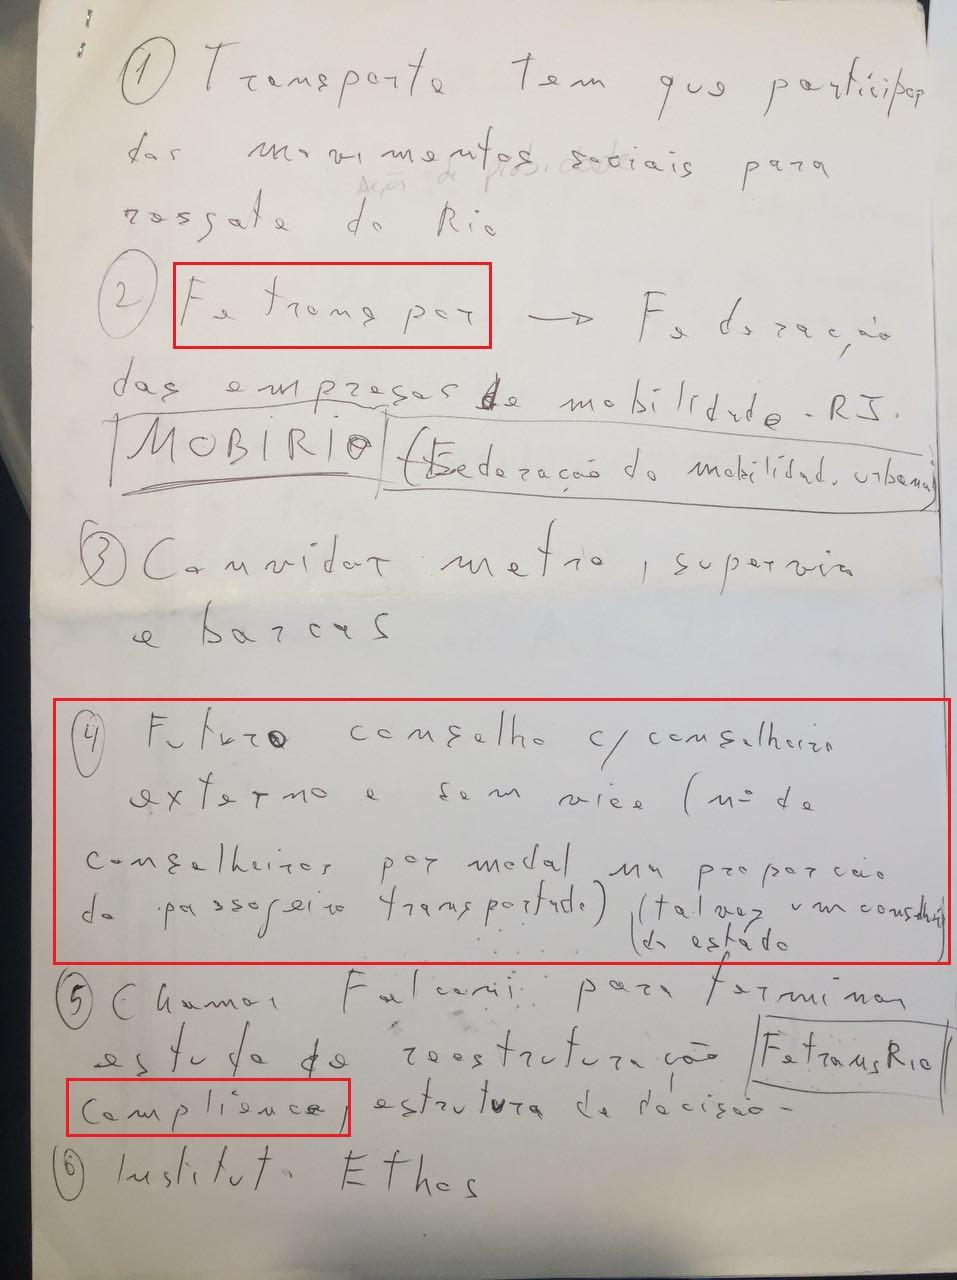 ① Transporte tem que participar
dos movimentos sociais para
resgate do Rio
② Fetranspor → Federação
das empresas de mobilidade - RJ.
MOBIRIO (Federação de mobilidad. urbana)
③ Convidar metro, supervia
e barcas
④ Futuro conselho c/ conselheiro
externo e sem vice (nº de
conselheiros por modal na proporção
do passageiro transportado) (talvez um conselho
do estado
⑤ Chamar Falconi para terminar
estudo de reestruturação FetransRio
Complience, estrutura de decisão -
⑥ Instituto Ethos